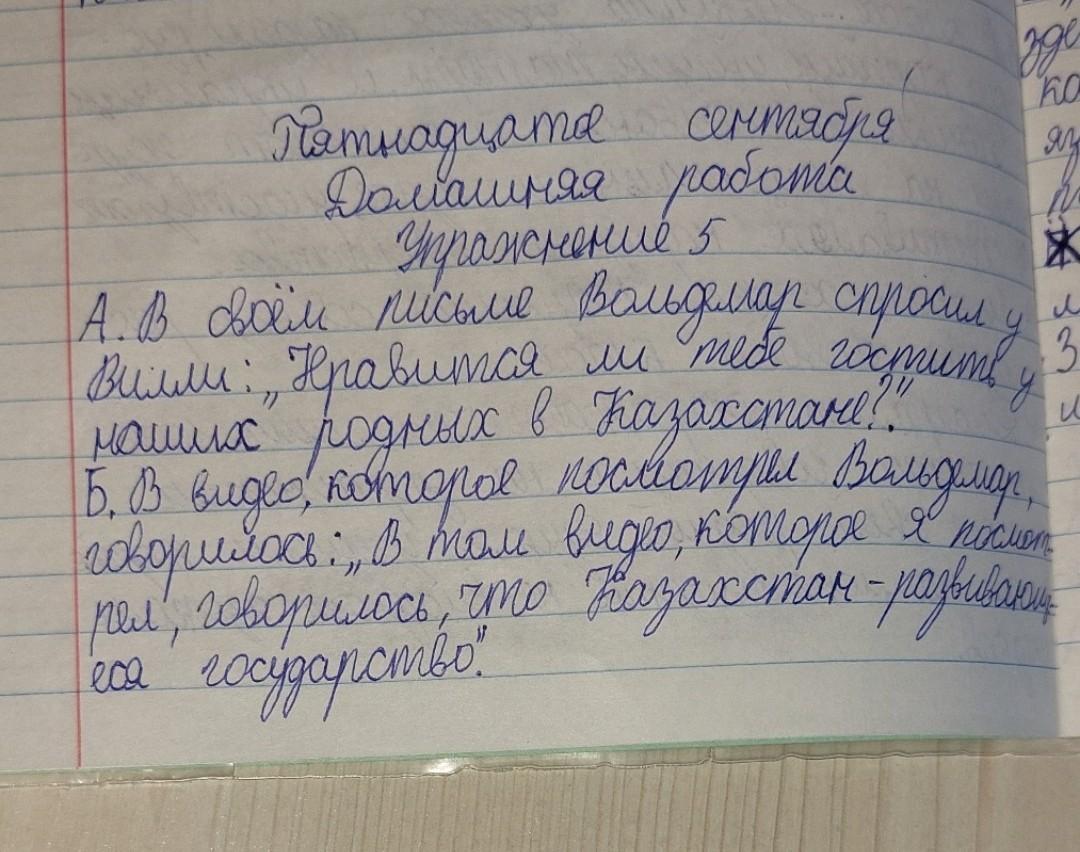 Пятнадцатое сентября
Домашняя работа
Упражнение 5
А. В своём письме Вольдемар спросил у
Вилли: „Нравится ли тебе гостить у
наших родных в Казахстане?".
Б. В видео, которое посмотрел Вольдемар,
говорилось: „В том видео, которое я посмот-
рел, говорилось, что Казахстан - развивающе-
еся государство".
зде
ко
яз
З